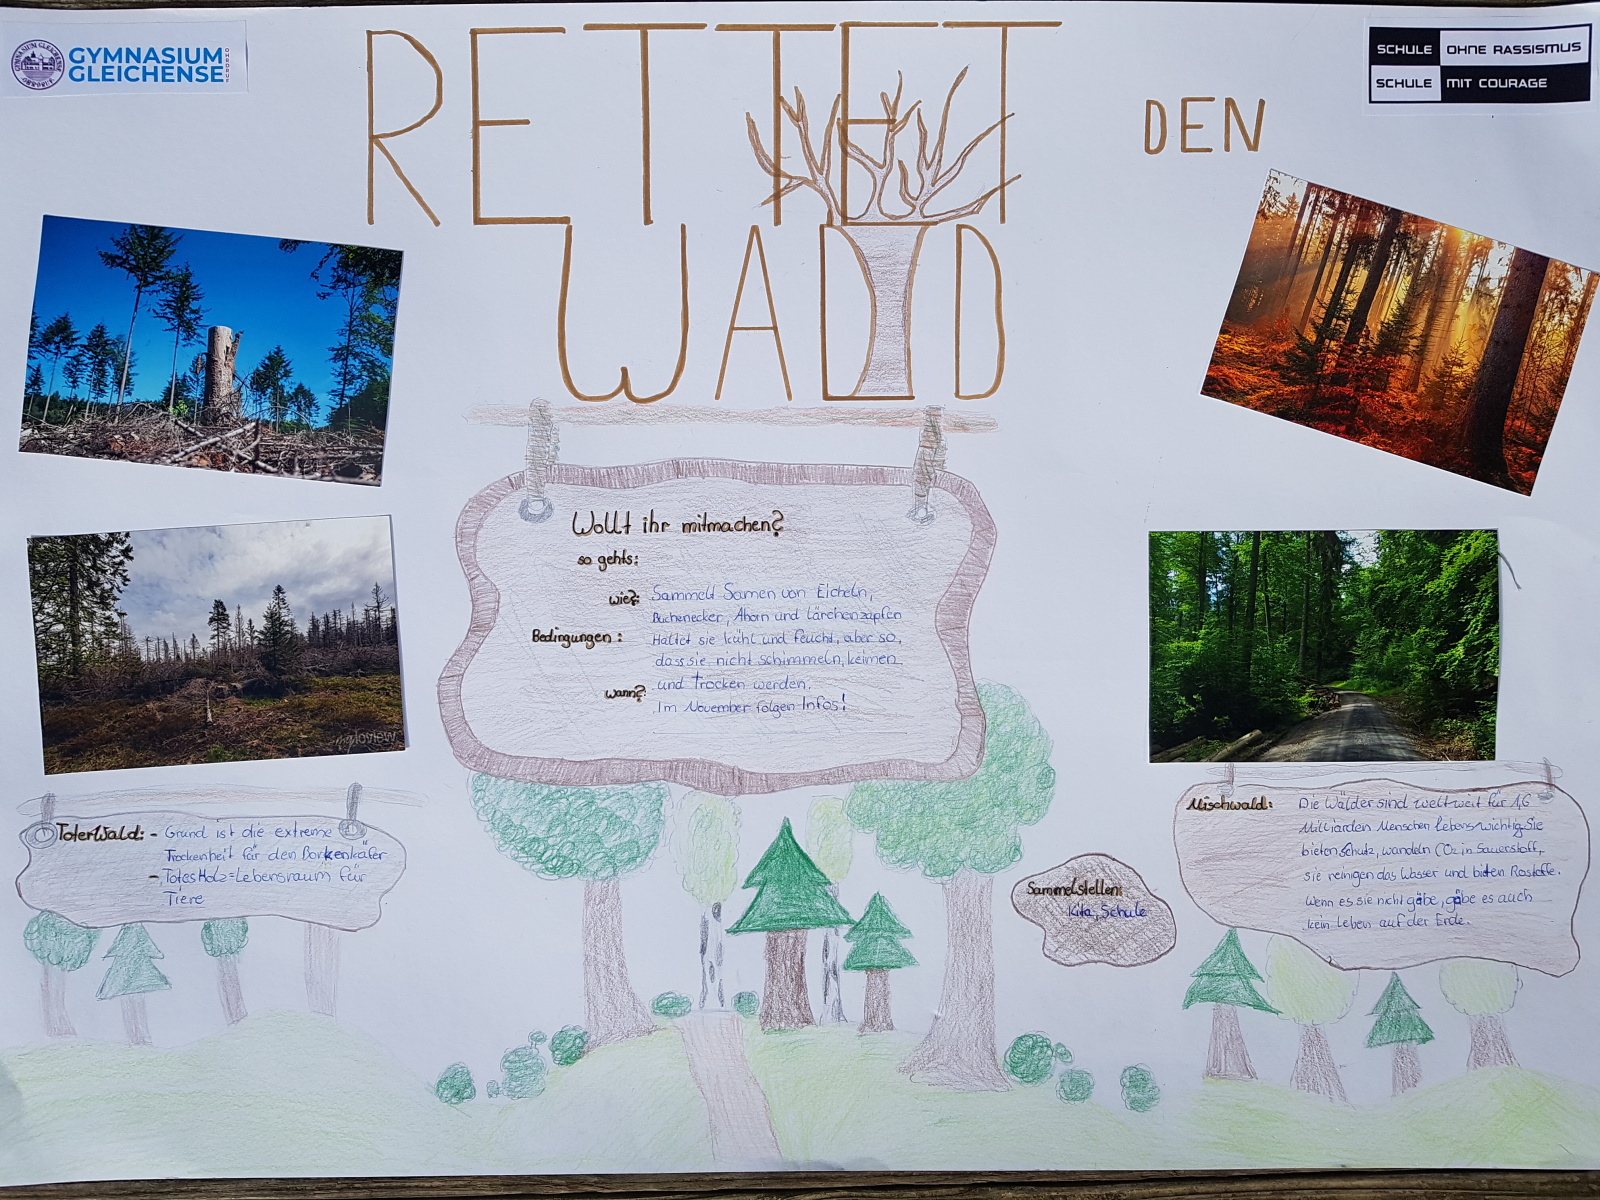 GYMNASIUM
GLEICHENSE
OHRDRUF
SCHULE OHNE RASSISMUS
SCHULE MIT COURAGE
RETTET DEN
WALD
Wollt ihr mitmachen?
so gehts:
wie?: Sammeld Samen von Eicheln,
Buchenecker, Ahorn und Lärchenzapfen
Bedingungen: Haltet sie kühl und feucht, aber so,
dass sie nicht schimmeln, keimen
und Trocken werden.
wann?: Im November folgen Infos!
Toter Wald: - Grund ist die extreme
Trockenheit für den Borkenkäfer
- Totes Holz = Lebensraum für
Tiere
Sammelstellen:
Kita, Schule
Mischwald: Die Wälder sind weltweit für 1,6
Milliarden Menschen lebenswichtig. Sie
bieten Schutz, wandeln CO2 in Sauerstoff,
sie reinigen das Wasser und bieten Rostoffe.
Wenn es sie nicht gäbe, gäbe es auch
kein Leben auf der Erde.